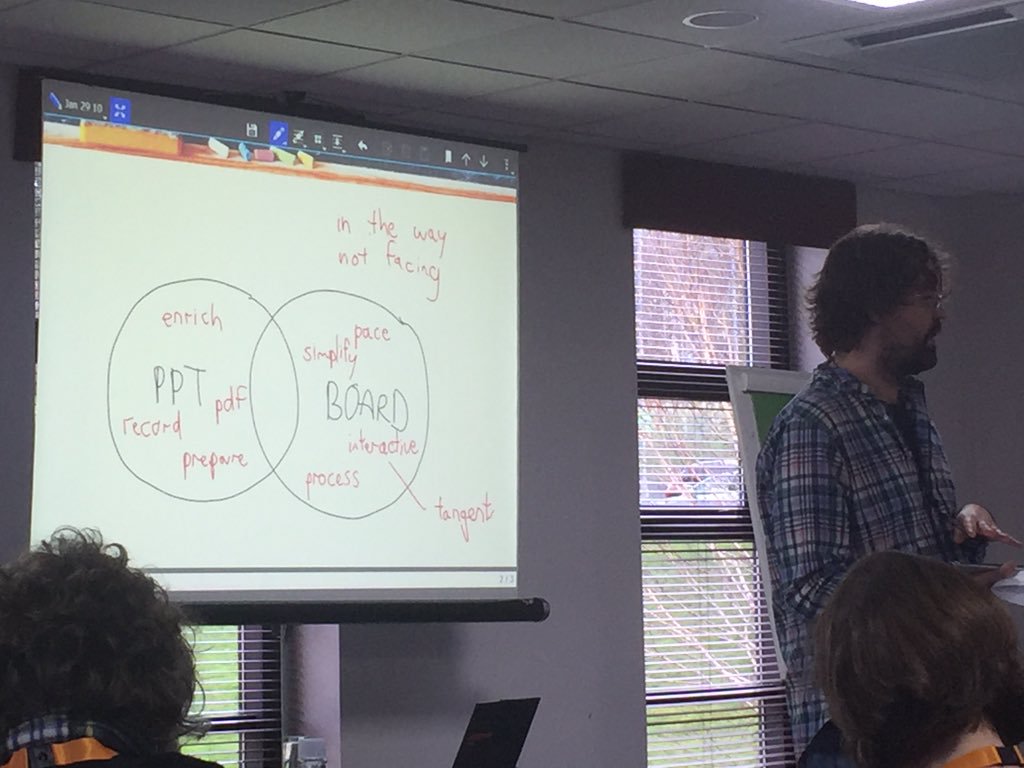 Jan 29 10
in the way
not facing
enrich
PPT
pdf
record
prepare
pace
simplify
BOARD
interactive
process
tangents
2/3